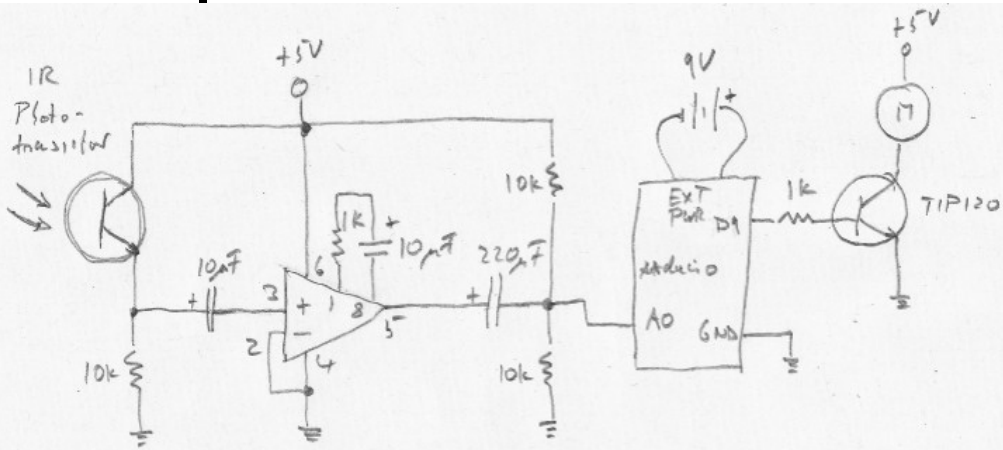 IR
Photo-
transistor
+5V
10k
10µF
+
3
2
+
−
6
4
1
8
5
1k
+
10µF
220µF
+
10k
10k
9V
+
EXT
PWR
D9
Arduino
A0
GND
1k
+5V
M
TIP120